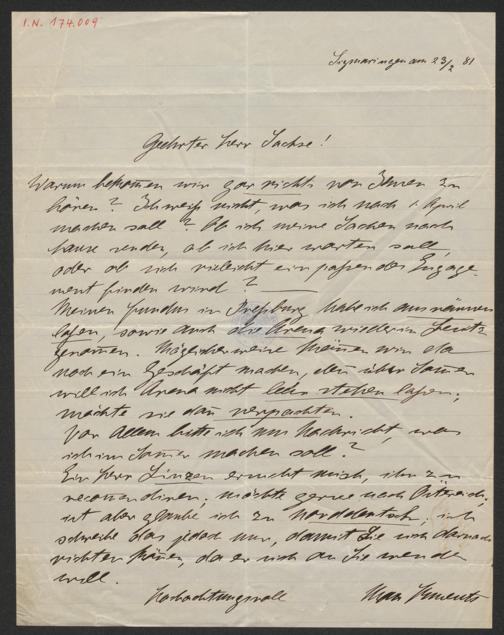 I.N. 174.009
Sigmaringen am 23/2 81
Geehrter Herr Sachse!
Warum bekommen wir gar nichts von Ihnen zu
hören? Ich weiß nicht, was ich nach 1 April
machen soll? Ob ich meine Sachen nach
Hause senden, ob ich hier warten soll,
oder ob sich vielleicht ein paßendes Engage-
ment finden wird?
Meinen Fundus in Preßburg habe ich ausräumen
laßen, sowie auch die Arena wieder in
genomen. Möglicherweise können wir da
noch ein Geschäft machen, den über Somer
will ich Arena nicht leer stehen laßen;
möchte sie dan verpachten.
Vor Allem bitte ich um Nachricht, was
ich im Somer machen soll?
Ein Herr Linzen ersucht mich, ihn zu
recomendiren; möchte gerne nach Östereich,
ist aber glaube ich zu norddeutsch; ich
schreibe das jedoch nur, damit Sie sich darnach
richten könen, da er sich an Sie wenden
will.
Hochachtungsvoll